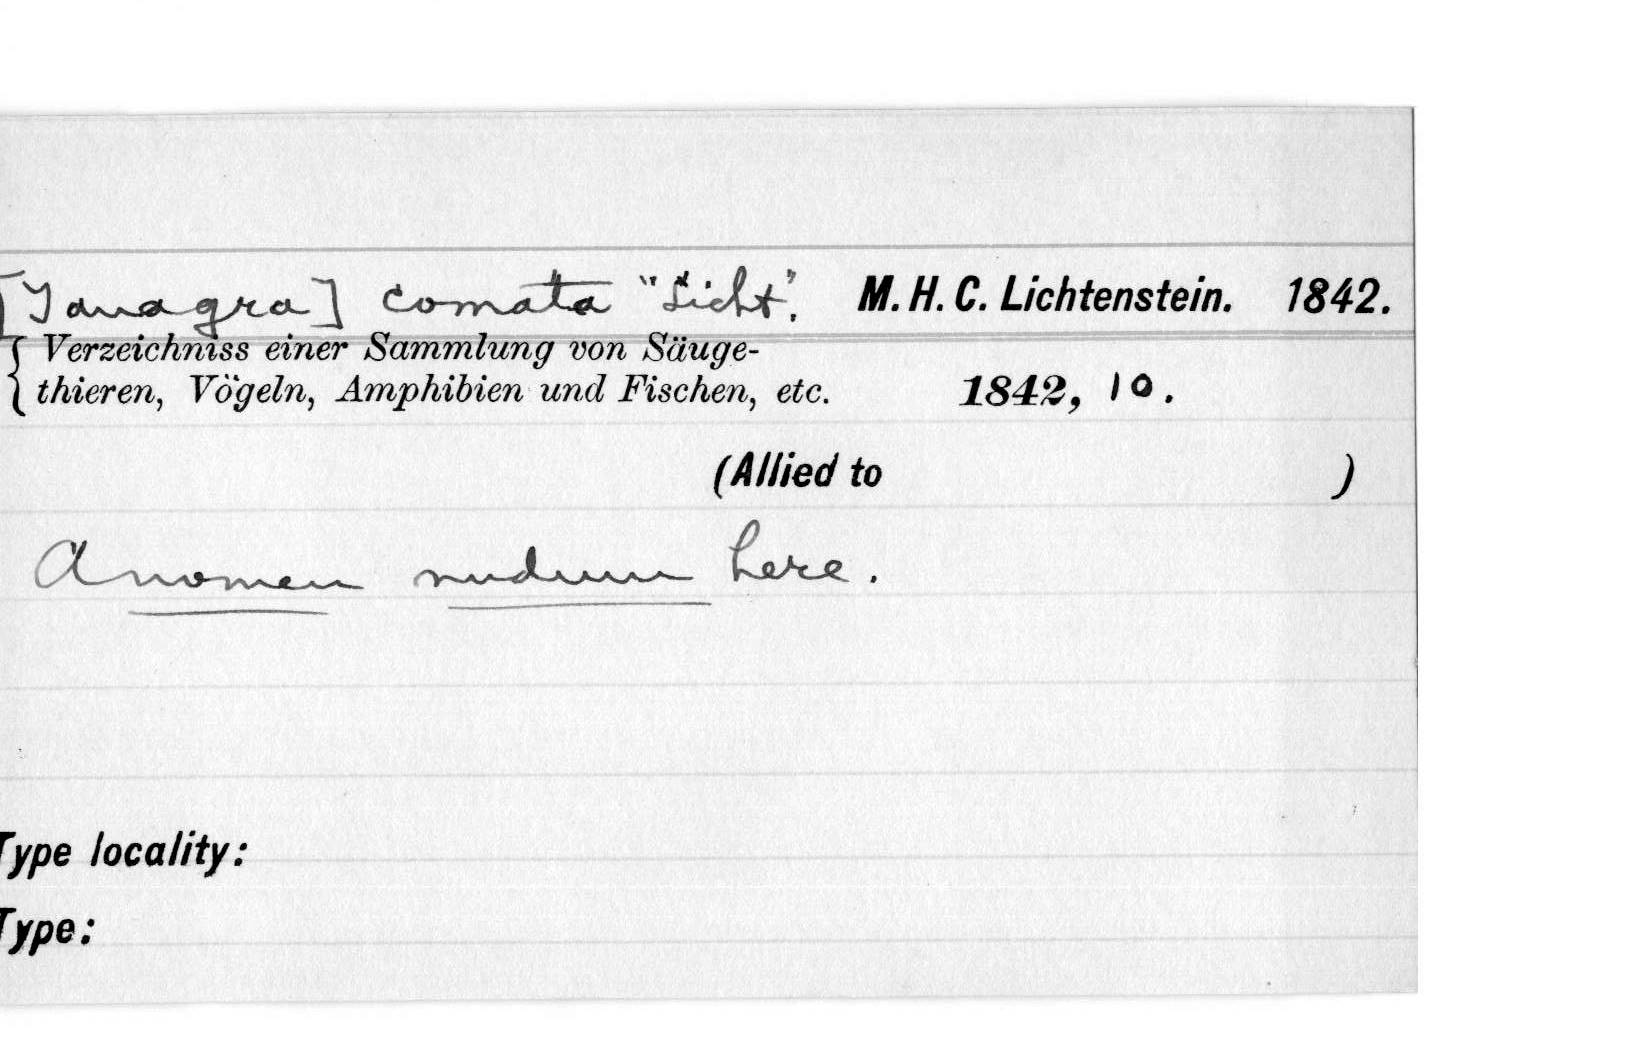 [Tanagra] comata "Licht". M. H. C. Lichtenstein. 1842.
{ Verzeichniss einer Sammlung von Säuge-
thieren, Vögeln, Amphibien und Fischen, etc. 1842, 10.
(Allied to )
A nomen nudum here.
Type locality:
Type: